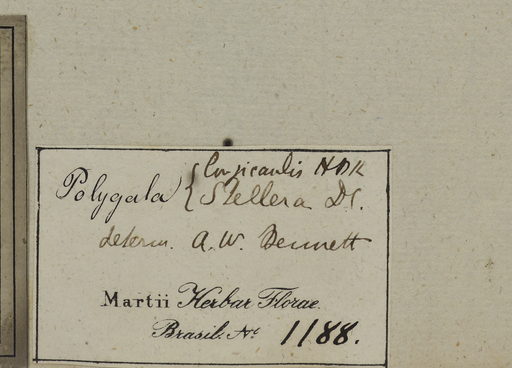 Longicaulis HBK
Polygala { Stellera DC.
determ. A. W. Bennett
Martii Herbar. Florae
Brasil. No. 1188.